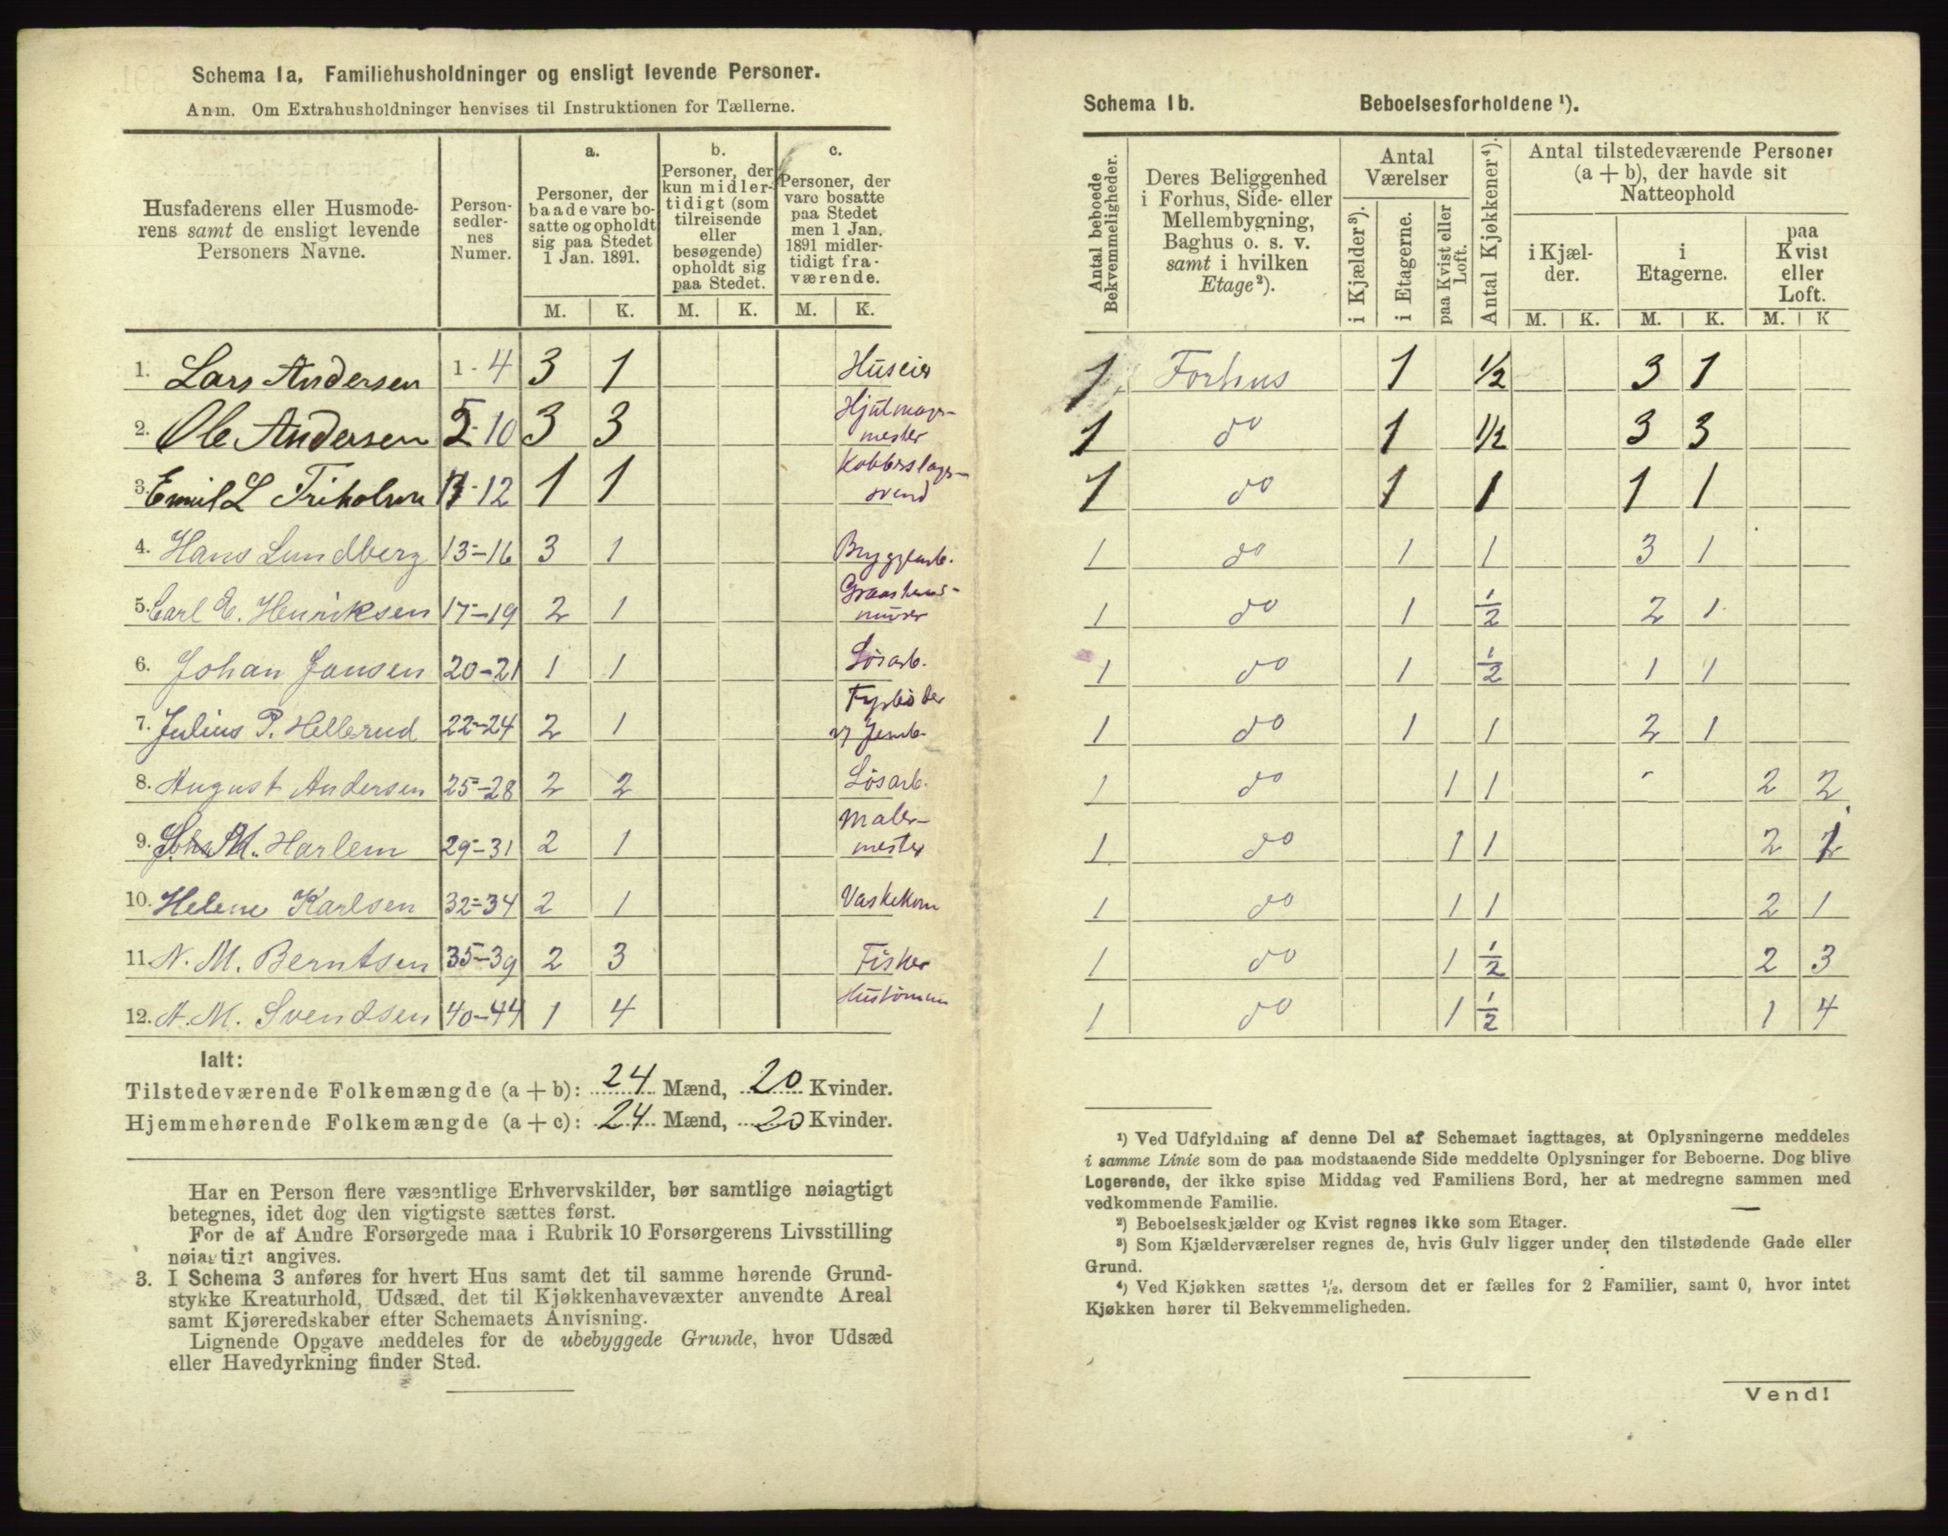 Schema 1a. Familiehusholdninger og ensligt levende Personer.
Anm. Om Extrahusholdninger henvises til Instruktionen for Tællerne.
Husfaderens eller Husmoderens samt de ensligt levende Personers Navne.
Personsedlernes Numer.
a. Personer, der baade vare bosatte og opholdt sig paa Stedet 1 Jan. 1891.
b. Personer, der kun midlertidigt (som tilreisende eller besøgende) opholdt sig paa Stedet.
c. Personer, der vare bosatte paa Stedet men 1 Jan. 1891 midlertidigt fraværende.
M. K. M. K. M. K.
1. Lars Andersen 1-4 3 1 Huseier
2. Ole Andersen 5-10 3 3 Hjulmagermester
3. Emil L 11-12 1 1 Kobberslagersvend
4. Hans Lundberg 13-16 3 1 Bryggearb.
5. Carl E. Henriksen 17-19 2 1
6. Johan Jansen 20-21 1 1 Løsarb.
7. Julius P. Hellerud 22-24 2 1 Fyrbøder v/ Jernb.
8. August Andersen 25-28 2 2 Løsarb.
9. Joh. M. Harlem 29-31 2 1 Malermester
10. Helene Karlsen 32-34 2 1 Vaskekone
11. N. M. Berntsen 35-39 2 3 Fisker
12. A. M. Svendsen 40-44 1 4
Ialt:
Tilstedeværende Folkemængde (a + b): 24 Mænd, 20 Kvinder.
Hjemmehørende Folkemængde (a + c): 24 Mænd, 20 Kvinder.
Har en Person flere væsentlige Erhvervskilder, bør samtlige nøiagtigt
betegnes, idet dog den vigtigste sættes først.
For de af Andre Forsørgede maa i Rubrik 10 Forsørgerens Livsstilling
nøiagtigt angives.
3. I Schema 3 anføres for hvert Hus samt det til samme hørende Grund-
stykke Kreaturhold, Udsæd, det til Kjøkkenhavevæxter anvendte Areal
samt Kjøreredskaber efter Schemaets Anvisning.
Lignende Opgave meddeles for de ubebyggede Grunde, hvor Udsæd
eller Havedyrkning finder Sted.
Schema 1b. Beboelsesforholdene ¹).
Antal beboede Bekvemmeligheder.
Deres Beliggenhed i Forhus, Side- eller Mellembygning, Baghus o. s. v. samt i hvilken Etage ²).
Antal Værelser
i Kjælder ³). i Etagerne. paa Kvist eller Loft.
Antal Kjøkkener ⁴).
Antal tilstedeværende Personer (a + b), der havde sit Natteophold
i Kjælder. i Etagerne. paa Kvist eller Loft.
M. K. M. K. M. K
1 Forhus 1 1/2 3 1
1 do 1 1/2 3 3
1 do 1 1 1 1
1 do 1 1 3 1
1 do 1 1/2 2 1
1 do 1 1/2 1 1
1 do 1 1 2 1
1 do 1 1 2 2
1 do 1 1 2 1
1 do 1 1 2 1
1 do 1 1/2 2 3
1 do 1 1/2 1 4
¹) Ved Udfyldning af denne Del af Schemaet iagttages, at Oplysningerne meddeles
i samme Linie som de paa modstaaende Side meddelte Oplysninger for Beboerne. Dog blive
Logerende, der ikke spise Middag ved Familiens Bord, her at medregne sammen med
vedkommende Familie.
²) Beboelseskjælder og Kvist regnes ikke som Etager.
³) Som Kjælderværelser regnes de, hvis Gulv ligger under den tilstødende Gade eller
Grund.
⁴) Ved Kjøkken sættes ½, dersom det er fælles for 2 Familier, samt 0, hvor intet
Kjøkken hører til Bekvemmeligheden.
Vend!